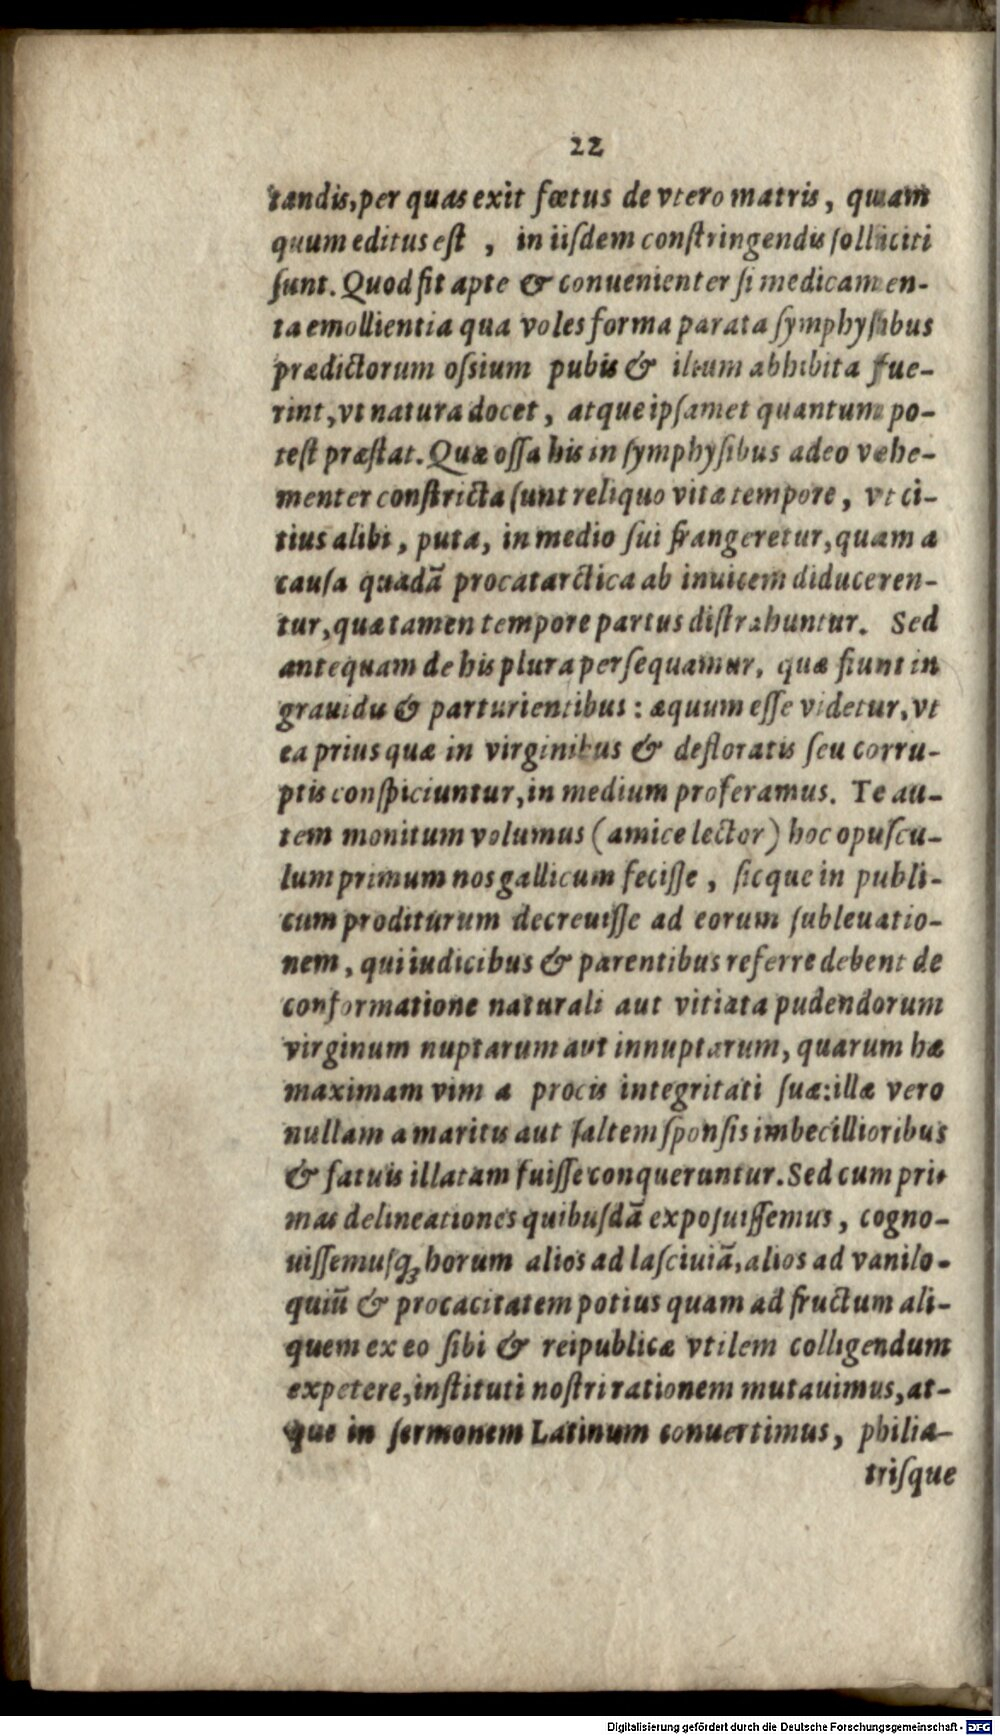 22
tandis, per quas exit fœtus de vtero matris, quam
quum editus est, in iisdem constringendis solliciti
sunt. Quod fit apte & conuenienter si medicamen-
ta emollientia qua voles forma parata symphysibus
prædictorum ossium pubis & ilium abhibita fue-
rint, vt natura docet, atque ipsamet quantum po-
test præstat. Quæ ossa his in symphysibus adeo vehe-
menter constricta sunt reliquo vitæ tempore, vt ci-
tius alibi, puta, in medio sui frangeretur, quam a
causa quadã procatarctica ab inuicem diduceren-
tur, quæ tamen tempore partus distrahuntur. Sed
antequam de his plura persequamur, quæ fiunt in
grauidis & parturientibus: æquum esse videtur, vt
ea prius quæ in virginibus & defloratis seu corru-
ptis conspiciuntur, in medium proferamus. Te au-
tem monitum volumus (amice lector) hoc opuscu-
lum primum nos gallicum fecisse, sicque in publi-
cum proditurum decreuisse ad eorum subleuatio-
nem, qui iudicibus & parentibus referre debent de
conformatione naturali aut vitiata pudendorum
virginum nuptarum aut innuptarum, quarum hæ
maximam vim a procis integritati suæ: illæ vero
nullam a maritis aut saltem sponsis imbecillioribus
& fatuis illatam fuisse conquerantur. Sed cum pri-
mas delineationes quibusdã exposuissemus, cogno-
uissemusq; horum alios ad lasciuiã, alios ad vanilo-
quiũ & procacitatem potius quam ad fructum ali-
quem ex eo sibi & reipublicæ vtilem colligendum
expetere, instituti nostri rationem mutauimus, at-
que in sermonem Latinum conuertimus, philia-
trisque
Digitalisierung gefördert durch die Deutsche Forschungsgemeinschaft - DFG